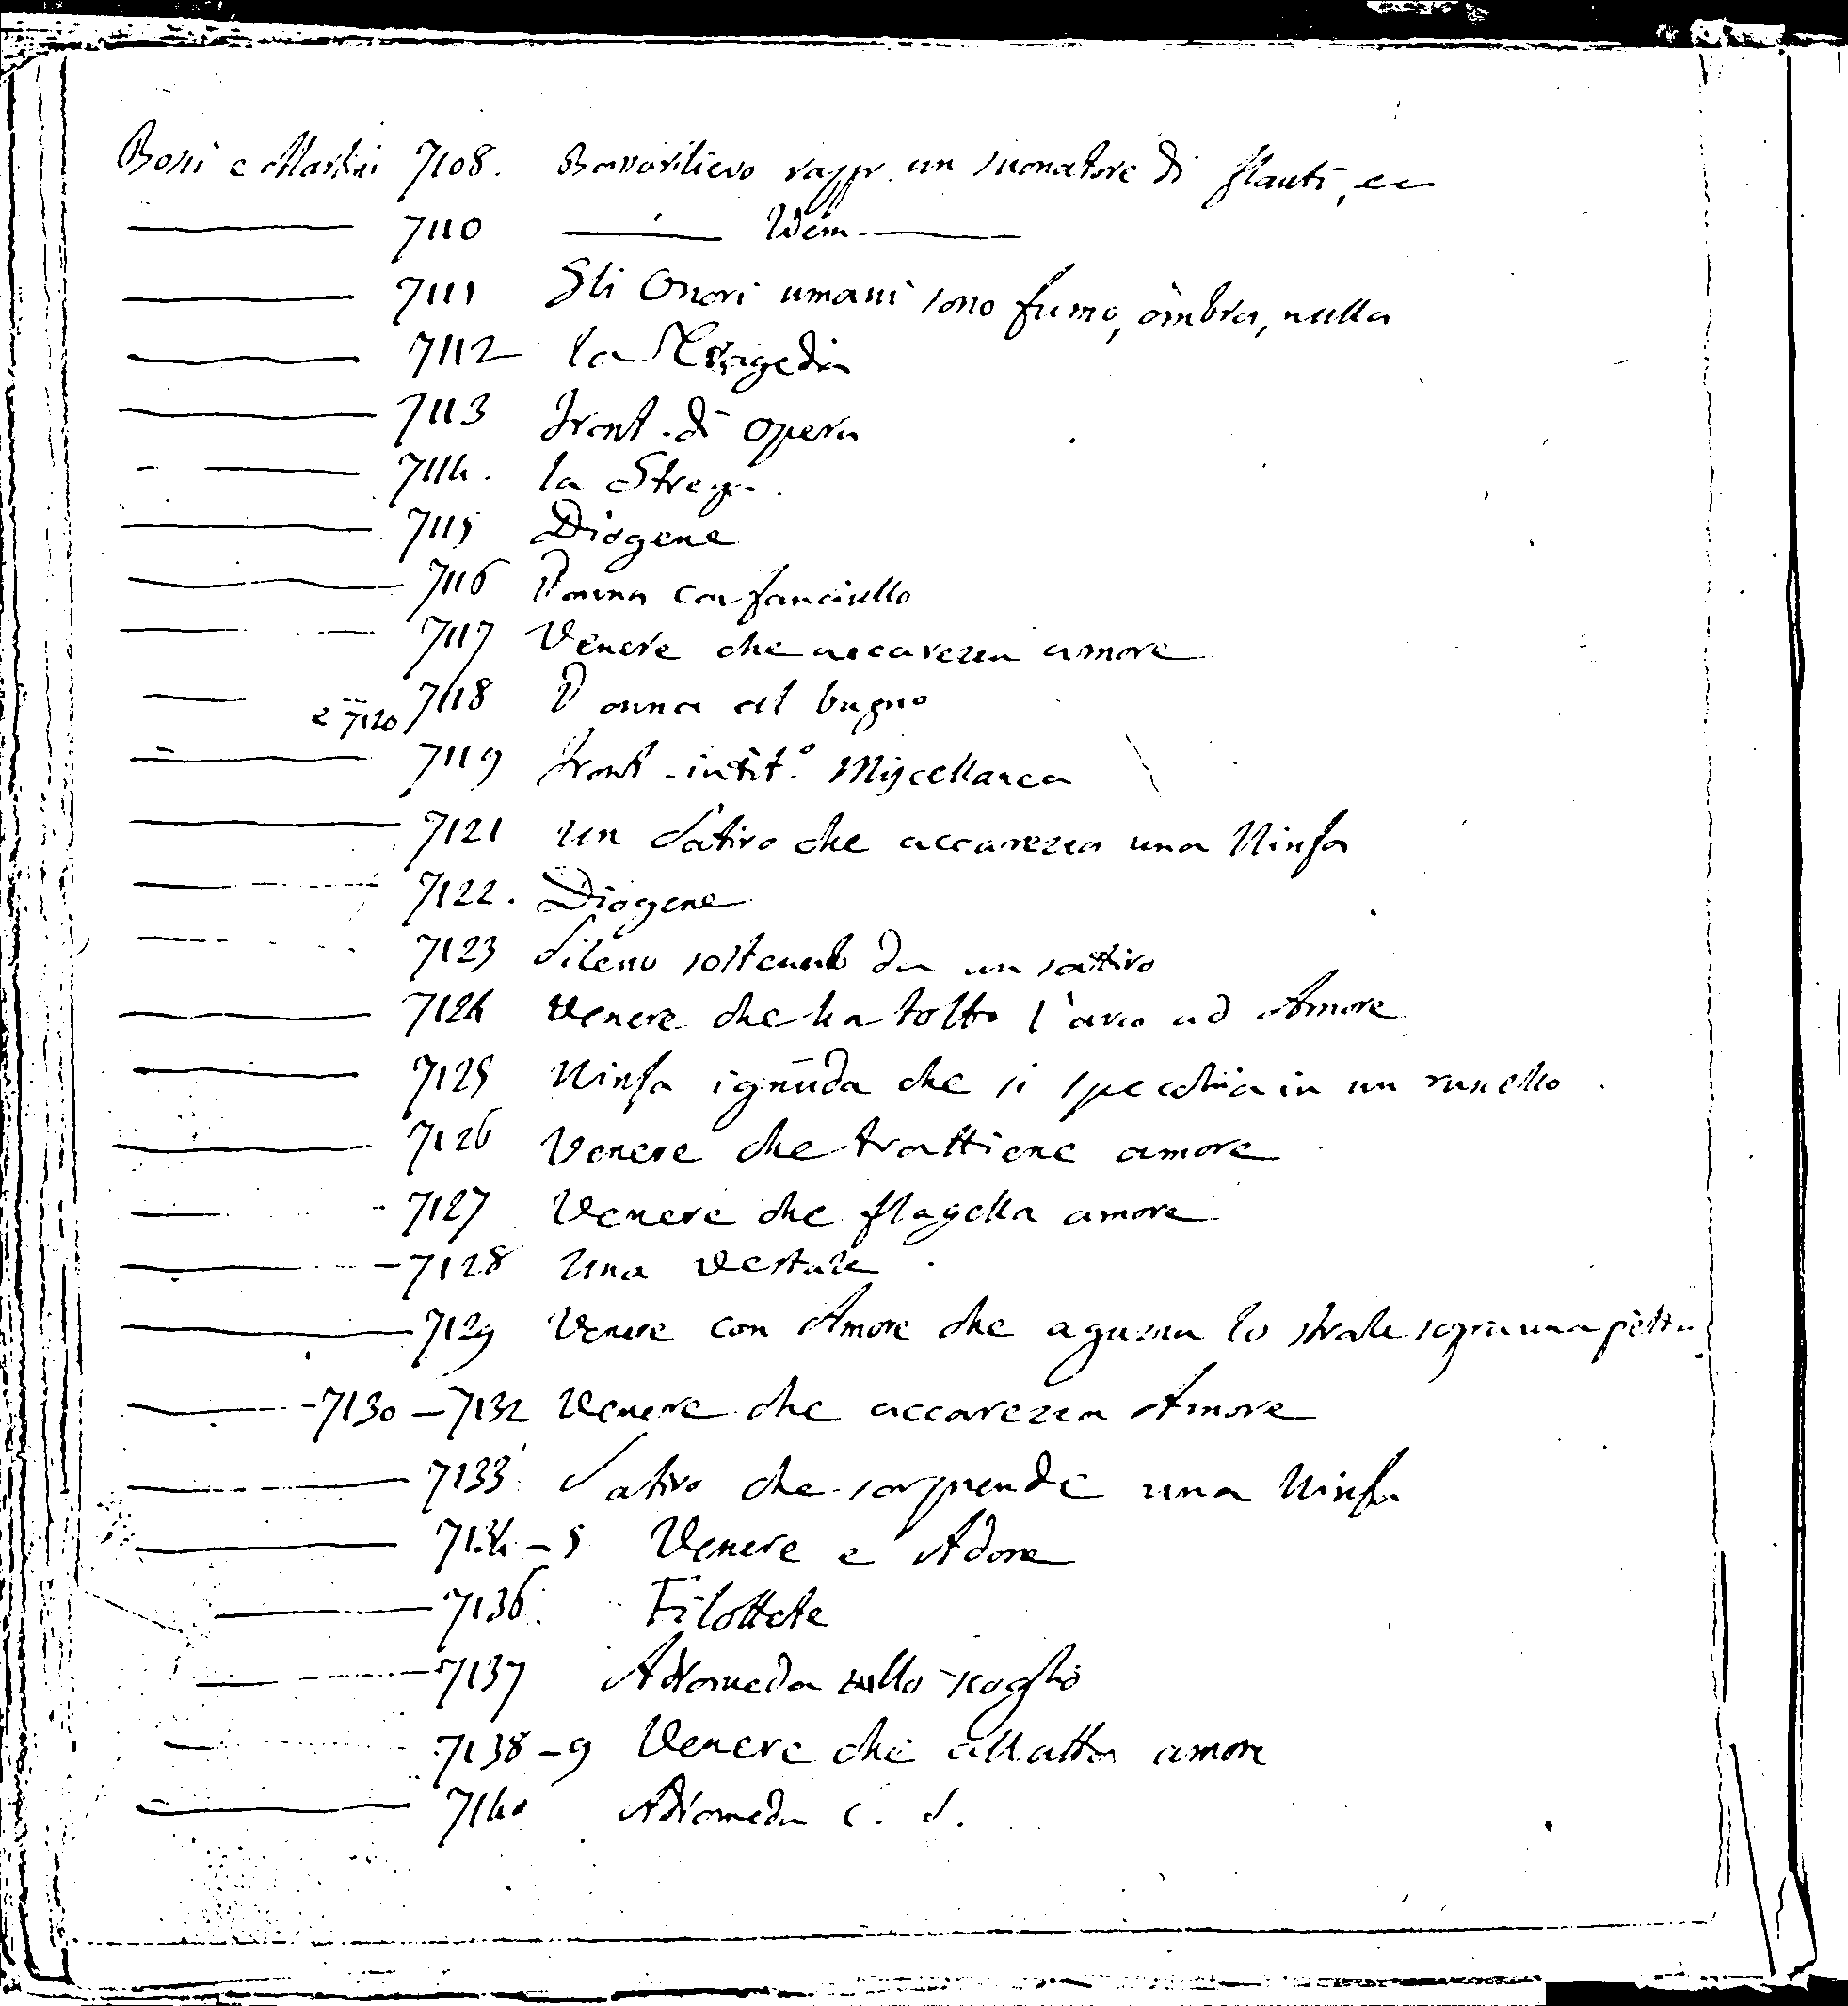 Bossi e Martini 7108. Bassorilievo rappr. un suonatore di flauti, ec
——— 7110 ——— Idem ———
——— 7111 Gli Onori umani sono fumo, ombra, nulla
——— 7112 la Tragedia
——— 7113 front. di opera
——— 7114. la Strega.
——— 7115 Diogene
——— 7116 Donna con fanciullo
——— 7117 Venere che accarezza amore
——— e 7120 7118 Donna al bagno
——— 7119 front. intit.° Miscellanea
——— 7121 Un Satiro che accarezza una Ninfa
——— 7122. Diogene
——— 7123 Sileno sostenuto da un satiro
——— 7124 Venere che ha tolto l'arco ad Amore
——— 7125 Ninfa ignuda che si specchia in un ruscello
——— 7126 Venere che trattiene amore
——— 7127 Venere che flagella amore
——— 7128 Una Vestale
——— 7129 Venere con Amore che aguzza lo strale sopra una pietra
——— 7130 — 7132 Venere che accarezza Amore
——— 7133 Satiro che sorprende una Ninfa
——— 7134 - 5 Venere e Adone
——— 7136. Filottete
——— 7137 Adromeda sullo scoglio
——— 7138 - 9 Venere che allatta amore
——— 7140 Adromeda c. s.